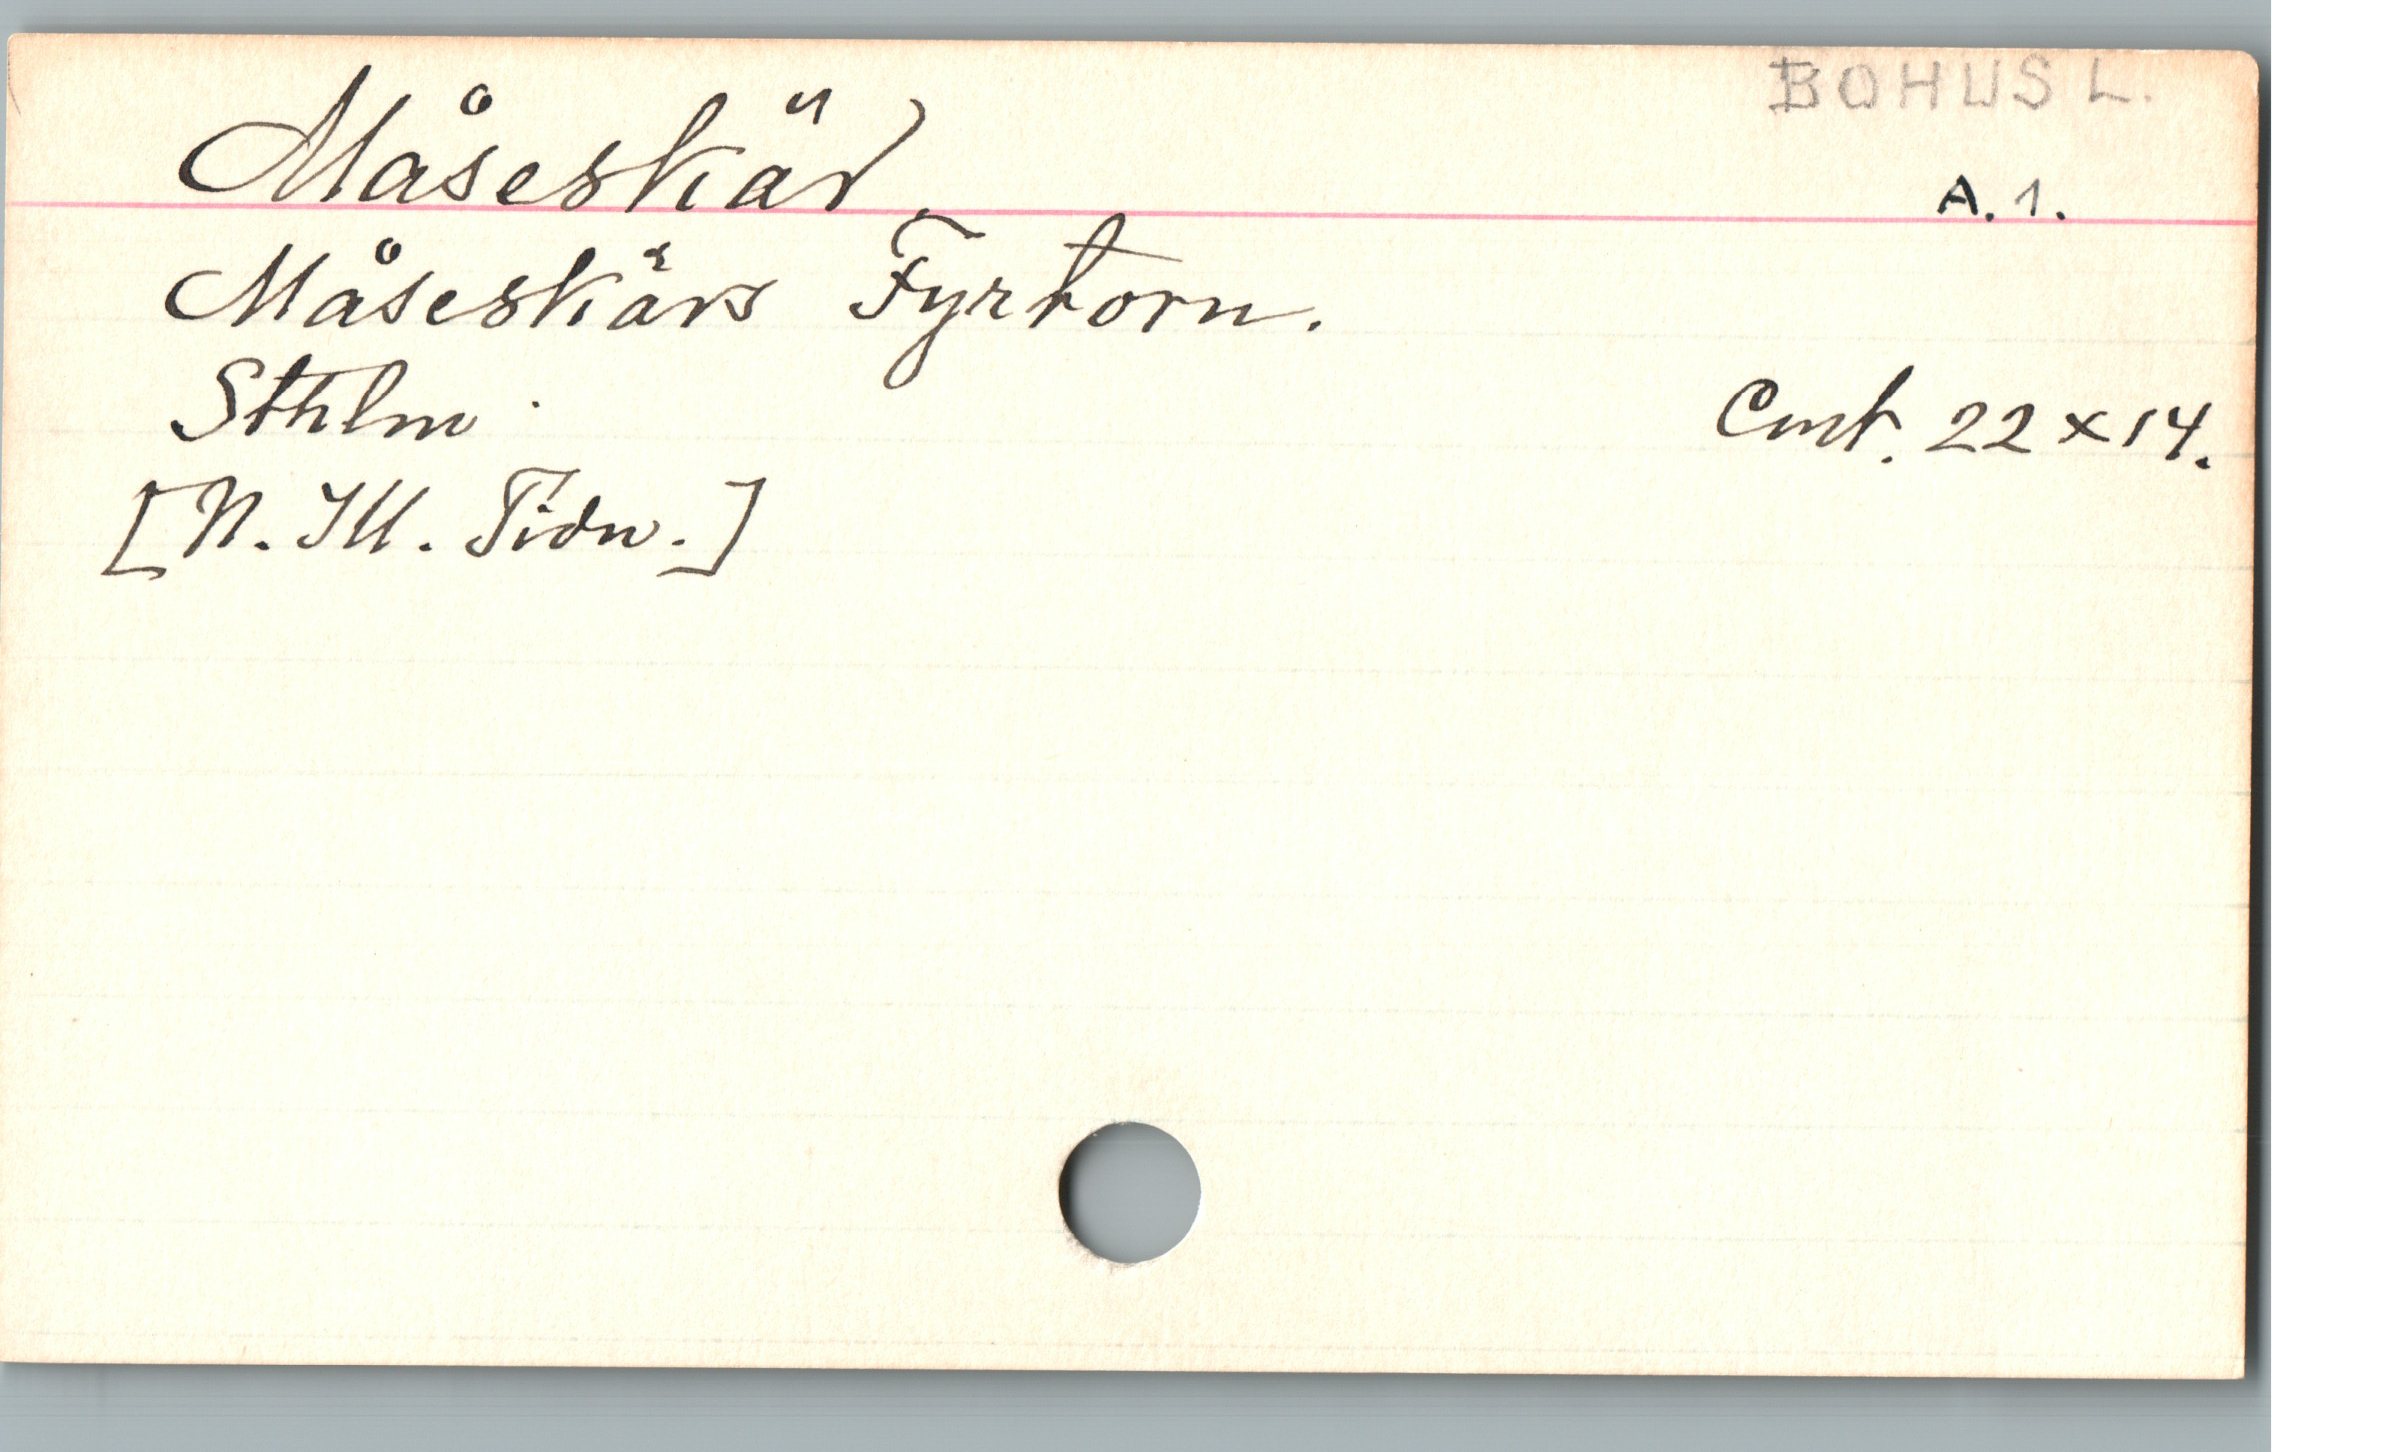 BOHUSL.
Måseskär.
A. 1.
Måseskärs Fyrtorn.
Sthlm.
Cmt. 22 x 14.
[N. Ill. Tidn.]